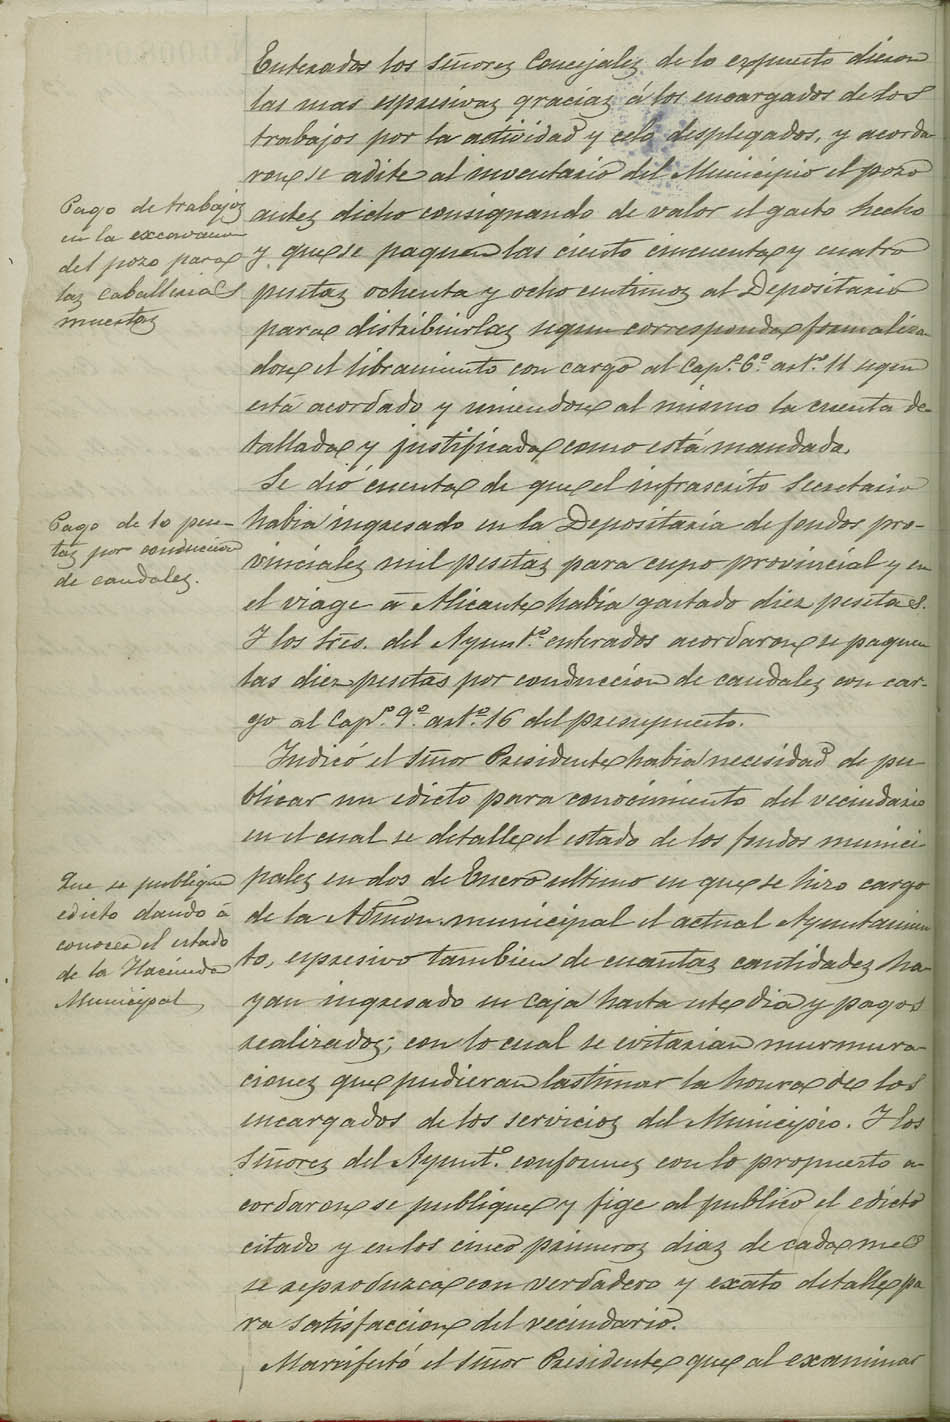 Enterados los Señores Concejales de lo expuesto dieron
las mas espresivas gracias á los encargados de los
trabajos por la actividad y celo desplegados, y acorda-
ron se adite al inventario del Municipio el pozo
antes dicho consignando de valor el gasto hecho
y que se paguen las ciento cincuenta y cuatro
pesetas ochenta y ocho centimos al Depositario
para distribuirlas segun corresponda formaliza-
dose el libramiento con cargo al Cap.º 6.º art.º 11 segun
está acordado y uniendose al mismo la cuenta de-
tallada y justificada como está mandado.
Pago de trabajos
en la excavacion
del pozo para
las caballerias
muertas
Se dió cuenta de que el infrascrito Secretario
habia ingresado en la Depositaria de fondos pro-
vinciales mil pesetas para cupo provincial y en
el viage á Alicante habia gastado diez pesetas.
Y los Sres. del Ayunt.º enterados acordaron se paguen
las diez pesetas por conducción de caudales con car-
go al Cap.º 9.º art.º 16 del presupuesto.
Pago de 10 pese-
tas por conduccion
de caudales.
Indicó el Señor Presidente habia necesidad de pu-
blicar un edicto para conocimiento del vecindario
en el cual se detalle el estado de los fondos munici-
pales en dos de Enero ultimo en que se hizo cargo
de la Admon. municipal el actual Ayuntamien-
to, espresivo tambien de cuantas cantidades ha-
yan ingresado en caja hasta este dia y pagos
realizados; con lo cual se evitarian murmura-
ciones que pudieran lastimar la honra de los
encargados de los servicios del Municipio. Y los
Señores del Ayunt.º conformes con lo propuesto a-
cordaron se publique y fige al publico el edicto
citado y en los cinco primeros dias de cada mes
se reproduzca con verdadero y exato detalle pa-
ra satisfaccion del vecindario.
Que se publique
edicto dando á
conocer el estado
de la Hacienda
Municipal
Manifestó el Señor Presidente que al examinar